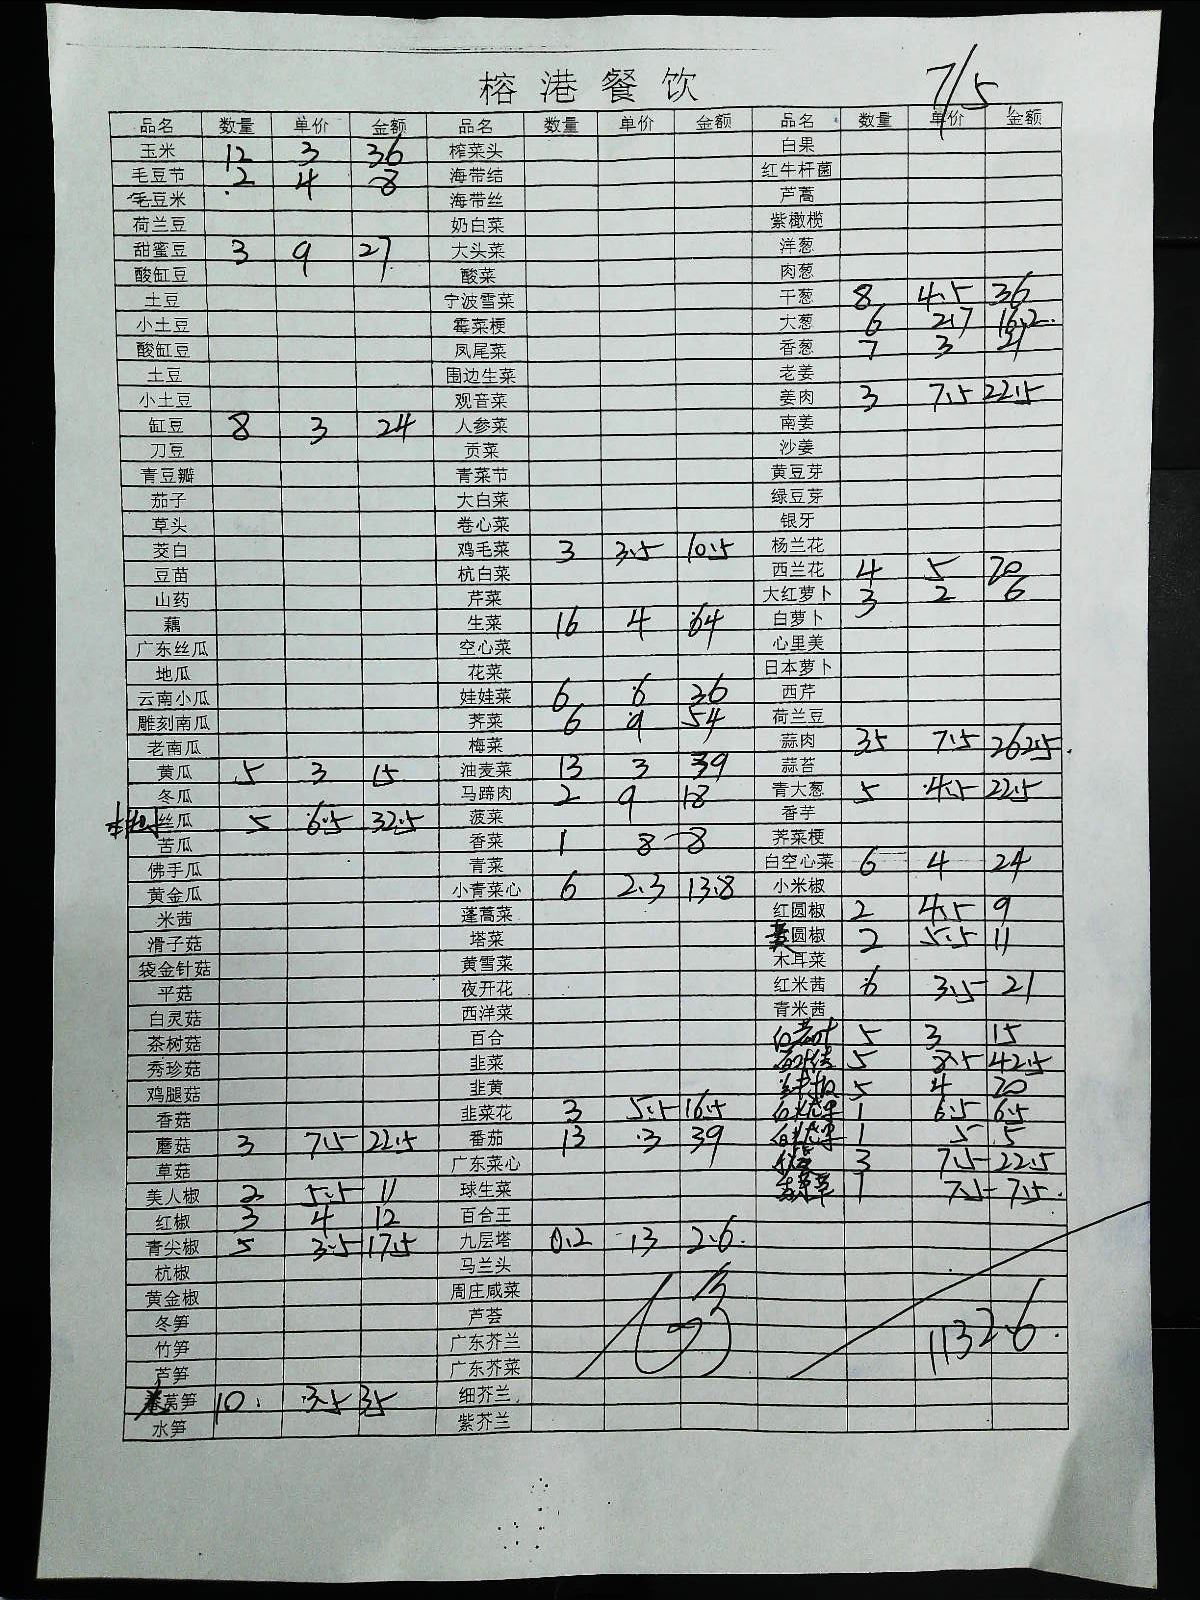 榕港餐饮
7/5
品名 数量 单价 金额 品名 数量 单价 金额 品名 数量 单价 金额
玉米 12 3 36 榨菜头 白果
毛豆节 2 4 8 海带结 红牛杆菌
毛豆米 海带丝 芦蒿
荷兰豆 奶白菜 紫橄榄
甜蜜豆 3 9 27 大头菜 洋葱
酸缸豆 酸菜 肉葱
土豆 宁波雪菜 干葱 8 4.5 36
小土豆 霉菜梗 大葱 6 2.7 16.2
酸缸豆 凤尾菜 香葱 7 3 21
土豆 围边生菜 老姜
小土豆 观音菜 姜肉 3 7.5 22.5
缸豆 8 3 24 人参菜 南姜
刀豆 贡菜 沙姜
青豆瓣 青菜节 黄豆芽
茄子 大白菜 绿豆芽
草头 卷心菜 银牙
茭白 鸡毛菜 3 3.5 10.5 杨兰花
豆苗 杭白菜 西兰花 4 5 20
山药 芹菜 大红萝卜 3 2 6
藕 生菜 16 4 64 白萝卜
广东丝瓜 空心菜 心里美
地瓜 花菜 日本萝卜
云南小瓜 娃娃菜 6 6 36 西芹
雕刻南瓜 荠菜 6 9 54 荷兰豆
老南瓜 梅菜 蒜肉 35 7.5 262.5
黄瓜 5 3 15 油麦菜 13 3 39 蒜苔
冬瓜 马蹄肉 2 9 18 青大葱 5 4.5 22.5
丝瓜 5 6.5 32.5 菠菜 香芋
苦瓜 香菜 1 8 8 荠菜梗
佛手瓜 青菜 白空心菜 6 4 24
黄金瓜 小青菜心 6 2.3 13.8 小米椒
米茜 蓬蒿菜 红圆椒 2 4.5 9
滑子菇 塔菜 圆椒 2 5.5 11
袋金针菇 黄雪菜 木耳菜
平菇 夜开花 红米茜 6 3.5 21
白灵菇 西洋菜 青米茜
茶树菇 百合 5 3 15
秀珍菇 韭菜 5 8.5 42.5
鸡腿菇 韭黄 5 4 20
香菇 韭菜花 3 5.5 16.5 1 6.5 6.5
蘑菇 3 7.5 22.5 番茄 13 3 39 1 5 5
草菇 广东菜心 3 7.5 22.5
美人椒 2 5.5 11 球生菜 1 7.5 7.5
红椒 3 4 12 百合王
青尖椒 5 3.5 17.5 九层塔 0.2 13 2.6
杭椒 马兰头
黄金椒 周庄咸菜
冬笋 芦荟
竹笋 广东芥兰 1132.6
芦笋 广东芥菜
莴笋 10 3.5 35 细芥兰
水笋 紫芥兰